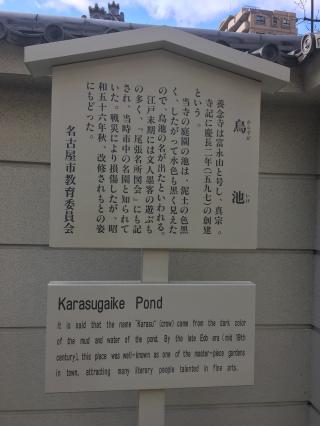 烏池
からすがいけ
養念寺は富永山と号し、真宗。
寺記に慶長二年（一五九七）の創建
という。
当寺の庭園の池は、泥土の色黒
く、したがって水色も黒く見えた
ので、烏池の名が出たといわれる。
江戸末期には文人墨客の遊ぶも
の多く、『尾張名所図会』にも記
され、当時市中の名園と知られて
いた。戦災により損傷したが、昭
和五十六年秋、改修されもとの姿
にもどった。
名古屋市教育委員会
Karasugaike Pond
It is said that the name "Karasu" (crow) came from the dark color
of the mud and water of the pond. By the late Edo era (mid 19th
century), this place was well-known as one of the master-piece gardens
in town, attracting many literary people talented in fine arts.